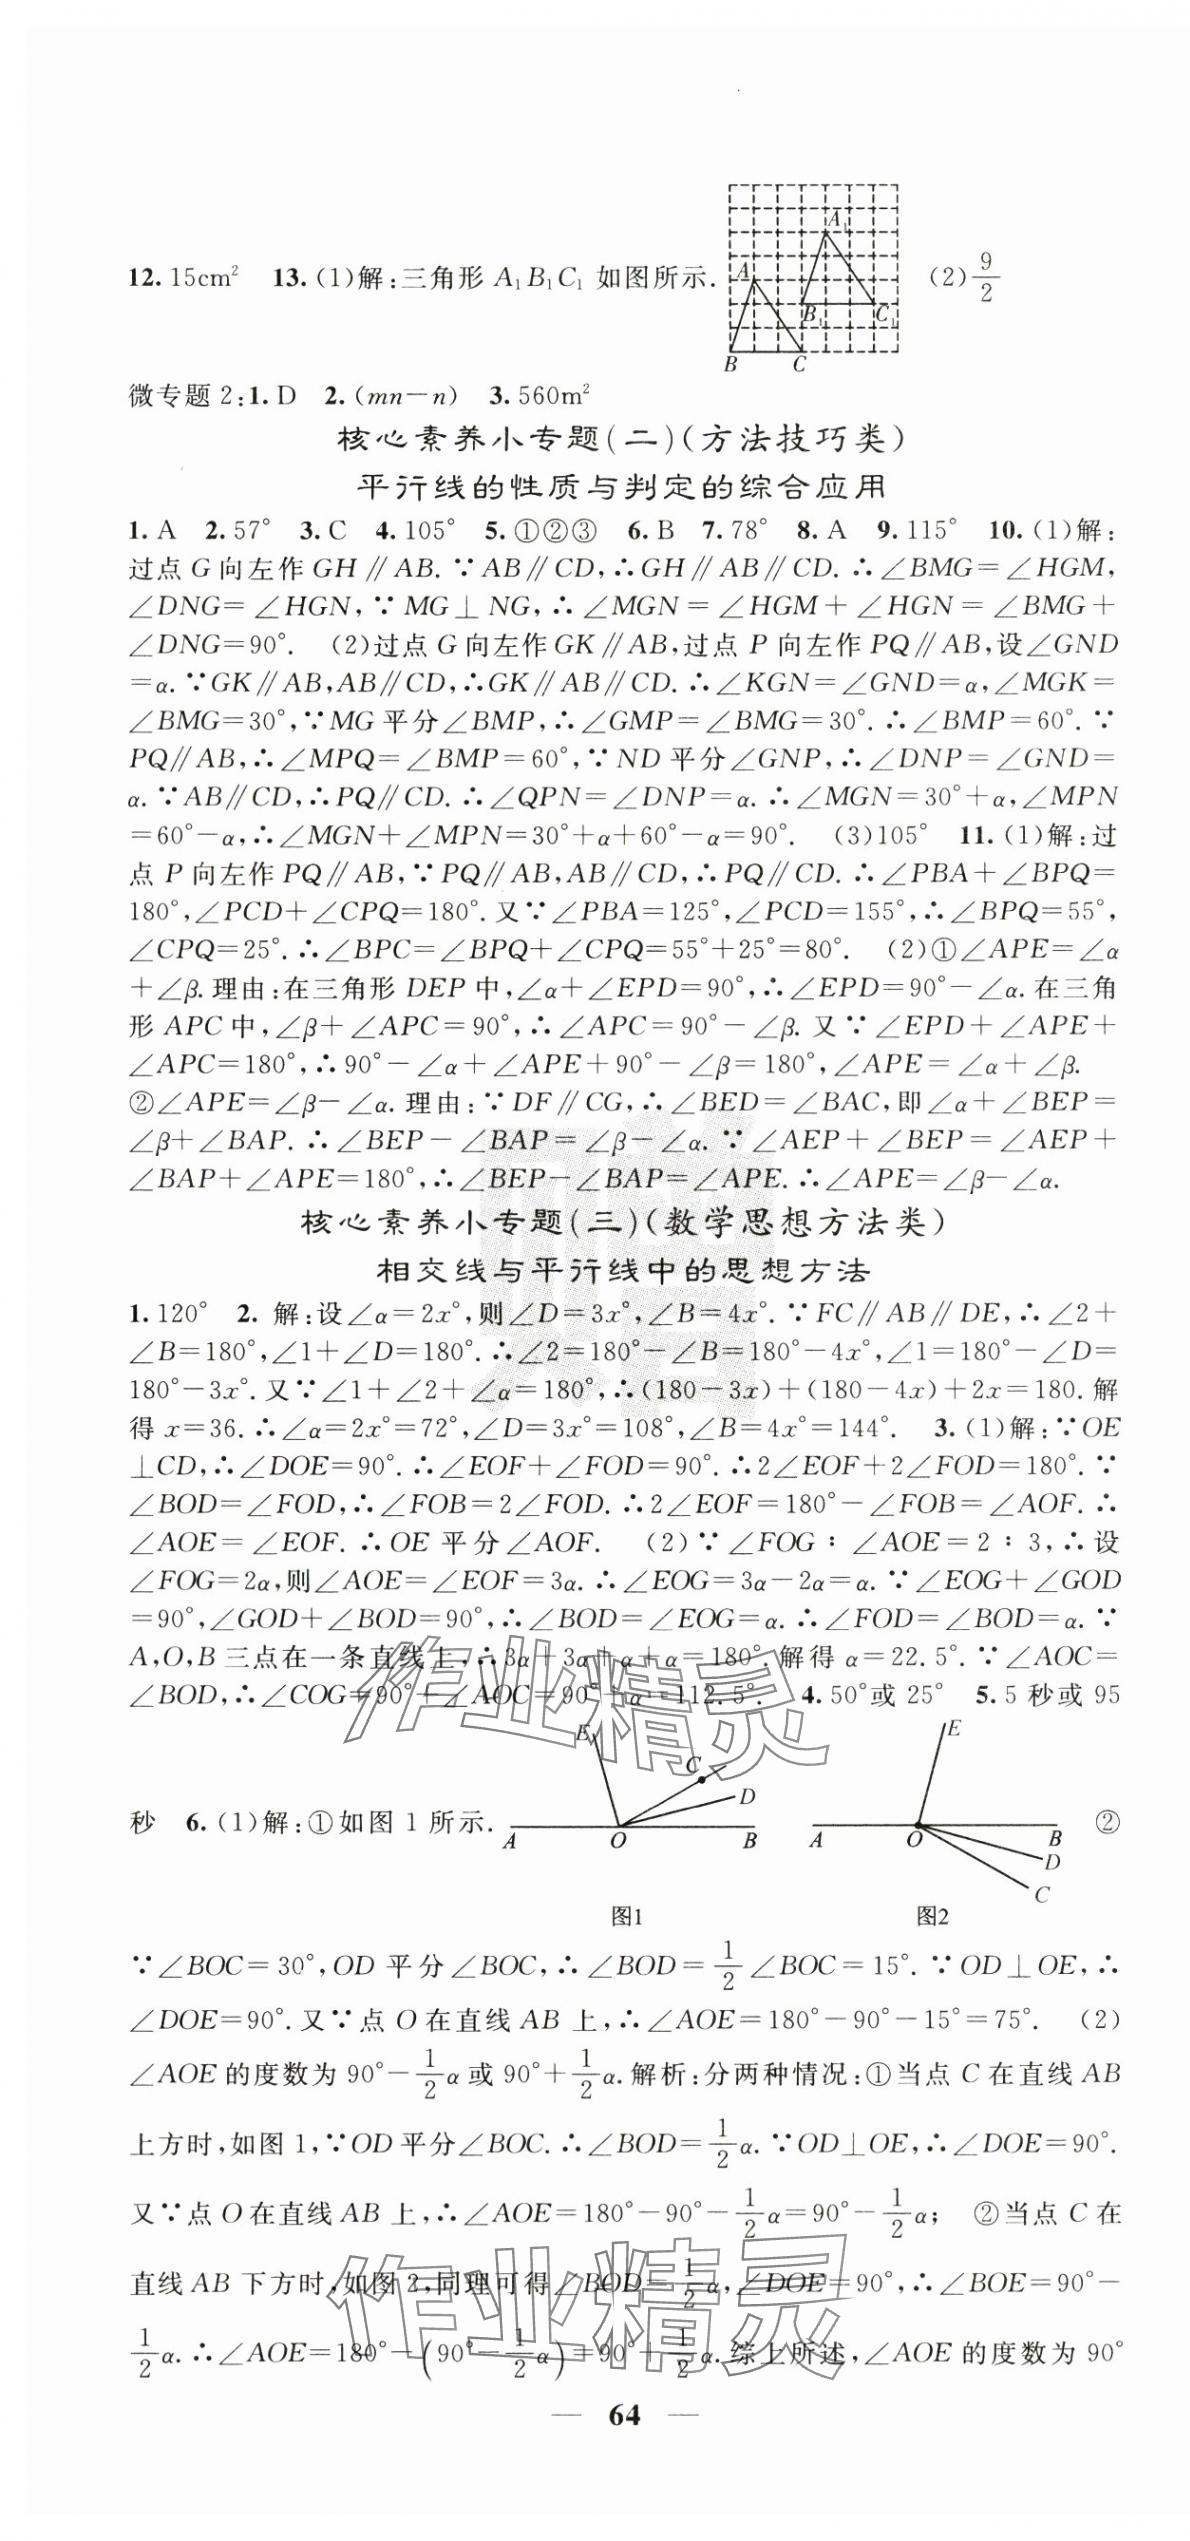 12. 15cm² 13. (1)解:三角形 A₁B₁C₁ 如图所示. (2) 9/2
A₁
A
B₁ C₁
B C
微专题 2:1. D 2. (mn－n) 3. 560m²
核心素养小专题(二)(方法技巧类)
平行线的性质与判定的综合应用
1. A 2. 57° 3. C 4. 105° 5. ①②③ 6. B 7. 78° 8. A 9. 115° 10. (1)解:
过点 G 向左作 GH∥AB. ∵AB∥CD,∴GH∥AB∥CD. ∴∠BMG=∠HGM,
∠DNG=∠HGN,∵MG⊥NG,∴∠MGN=∠HGM+∠HGN=∠BMG+
∠DNG=90°. (2)过点 G 向左作 GK∥AB,过点 P 向左作 PQ∥AB,设∠GND
=α. ∵GK∥AB,AB∥CD,∴GK∥AB∥CD. ∴∠KGN=∠GND=α,∠MGK=
∠BMG=30°,∵MG 平分∠BMP,∴∠GMP=∠BMG=30°. ∴∠BMP=60°. ∵
PQ∥AB,∴∠MPQ=∠BMP=60°,∵ND 平分∠GNP,∴∠DNP=∠GND=
α. ∵AB∥CD,∴PQ∥CD. ∴∠QPN=∠DNP=α. ∴∠MGN=30°+α,∠MPN
=60°－α,∴∠MGN+∠MPN=30°+α+60°－α=90°. (3)105° 11. (1)解:过
点 P 向左作 PQ∥AB,∵PQ∥AB,AB∥CD,∴PQ∥CD. ∴∠PBA+∠BPQ=
180°,∠PCD+∠CPQ=180°. 又∵∠PBA=125°,∠PCD=155°,∴∠BPQ=55°,
∠CPQ=25°. ∴∠BPC=∠BPQ+∠CPQ=55°+25°=80°. (2)①∠APE=∠α
+∠β. 理由:在三角形 DEP 中,∠α+∠EPD=90°,∴∠EPD=90°－∠α. 在三角
形 APC 中,∠β+∠APC=90°,∴∠APC=90°－∠β. 又∵∠EPD+∠APE+
∠APC=180°,∴90°－∠α+∠APE+90°－∠β=180°,∠APE=∠α+∠β.
②∠APE=∠β－∠α. 理由:∵DF∥CG,∴∠BED=∠BAC,即∠α+∠BEP=
∠β+∠BAP. ∴∠BEP－∠BAP=∠β－∠α. ∵∠AEP+∠BEP=∠AEP+
∠BAP+∠APE=180°,∴∠BEP－∠BAP=∠APE. ∴∠APE=∠β－∠α.
核心素养小专题(三)(数学思想方法类)
相交线与平行线中的思想方法
1. 120° 2. 解:设∠α=2x°,则∠D=3x°,∠B=4x°. ∵FC∥AB∥DE,∴∠2+
∠B=180°,∠1+∠D=180°. ∴∠2=180°－∠B=180°－4x°,∠1=180°－∠D=
180°－3x°. 又∵∠1+∠2+∠α=180°,∴(180－3x)+(180－4x)+2x=180. 解
得 x=36. ∴∠α=2x°=72°,∠D=3x°=108°,∠B=4x°=144°. 3. (1)解:∵OE
⊥CD,∴∠DOE=90°. ∴∠EOF+∠FOD=90°. ∴2∠EOF+2∠FOD=180°. ∵
∠BOD=∠FOD,∴∠FOB=2∠FOD. ∴2∠EOF=180°－∠FOB=∠AOF. ∴
∠AOE=∠EOF. ∴OE 平分∠AOF. (2)∵∠FOG∶∠AOE=2∶3,∴设
∠FOG=2α,则∠AOE=∠EOF=3α. ∴∠EOG=3α－2α=α. ∵∠EOG+∠GOD
=90°,∠GOD+∠BOD=90°,∴∠BOD=∠EOG=α. ∴∠FOD=∠BOD=α. ∵
A,O,B 三点在一条直线上,∴3α+3α+α+α=180°. 解得 α=22.5°. ∵∠AOC=
∠BOD,∴∠COG=90°+∠AOC=90°+α=112.5°. 4. 50°或 25° 5. 5 秒或 95
秒 6. (1)解:①如图 1 所示. ②
E C D A O B
图1
E A O B D C
图2
∵∠BOC=30°,OD 平分∠BOC,∴∠BOD=1/2∠BOC=15°. ∵OD⊥OE,∴
∠DOE=90°. 又∵点 O 在直线 AB 上,∴∠AOE=180°－90°－15°=75°. (2)
∠AOE 的度数为 90°－1/2α 或 90°+1/2α. 解析:分两种情况:①当点 C 在直线 AB
上方时,如图 1,∵OD 平分∠BOC. ∴∠BOD=1/2α. ∵OD⊥OE,∴∠DOE=90°.
又∵点 O 在直线 AB 上,∴∠AOE=180°－90°－1/2α=90°－1/2α; ②当点 C 在
直线 AB 下方时,如图 2,同理可得∠BOD=1/2α,∠DOE=90°,∴∠BOE=90°－
1/2α. ∴∠AOE=180°－(90°－1/2α)=90°+1/2α. 综上所述,∠AOE 的度数为 90°
— 64 —
作业精灵
作业精灵